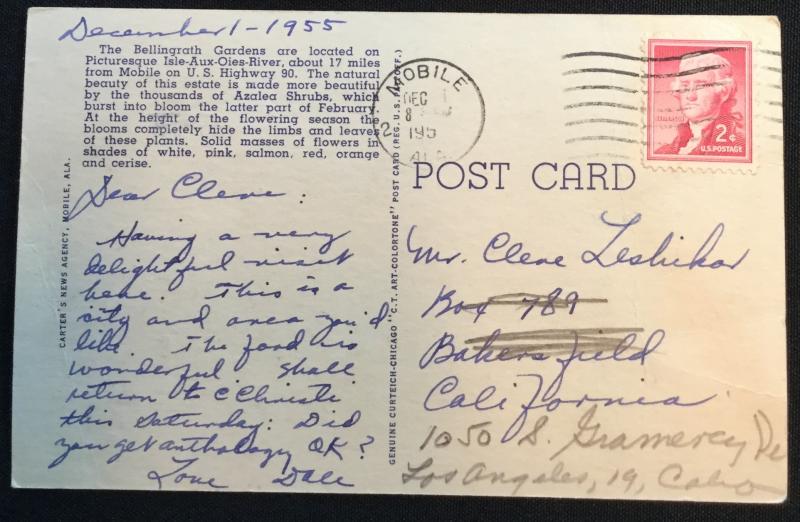 December 1 - 1955
The Bellingrath Gardens are located on
Picturesque Isle-Aux-Oies-River, about 17 miles
from Mobile on U. S. Highway 90. The natural
beauty of this estate is made more beautiful
by the thousands of Azalea Shrubs, which
burst into bloom the latter part of February.
At the height of the flowering season the
blooms completely hide the limbs and leaves
of these plants. Solid masses of flowers in
shades of white, pink, salmon, red, orange
and cerise.
CARTER'S NEWS AGENCY, MOBILE, ALA.
Dear Cleve:
Having a very
delightful visit
here. This is a
city and area you'd
like. The food is
wonderful Shall
return to C Christi
this Saturday. Did
you get anthology OK?
Love Dale
GENUINE CURTEICH-CHICAGO "C.T. ART-COLORTONE" POST CARD (REG. U.S. PAT. OFF.)
MOBILE
DEC 1
8
195
2
ALA
2¢
U.S. POSTAGE
POST CARD
Mr. Cleve Leshikar
Box 789
Bakersfield
California
1050 S. Gramercy Pl
Los Angeles, 19,